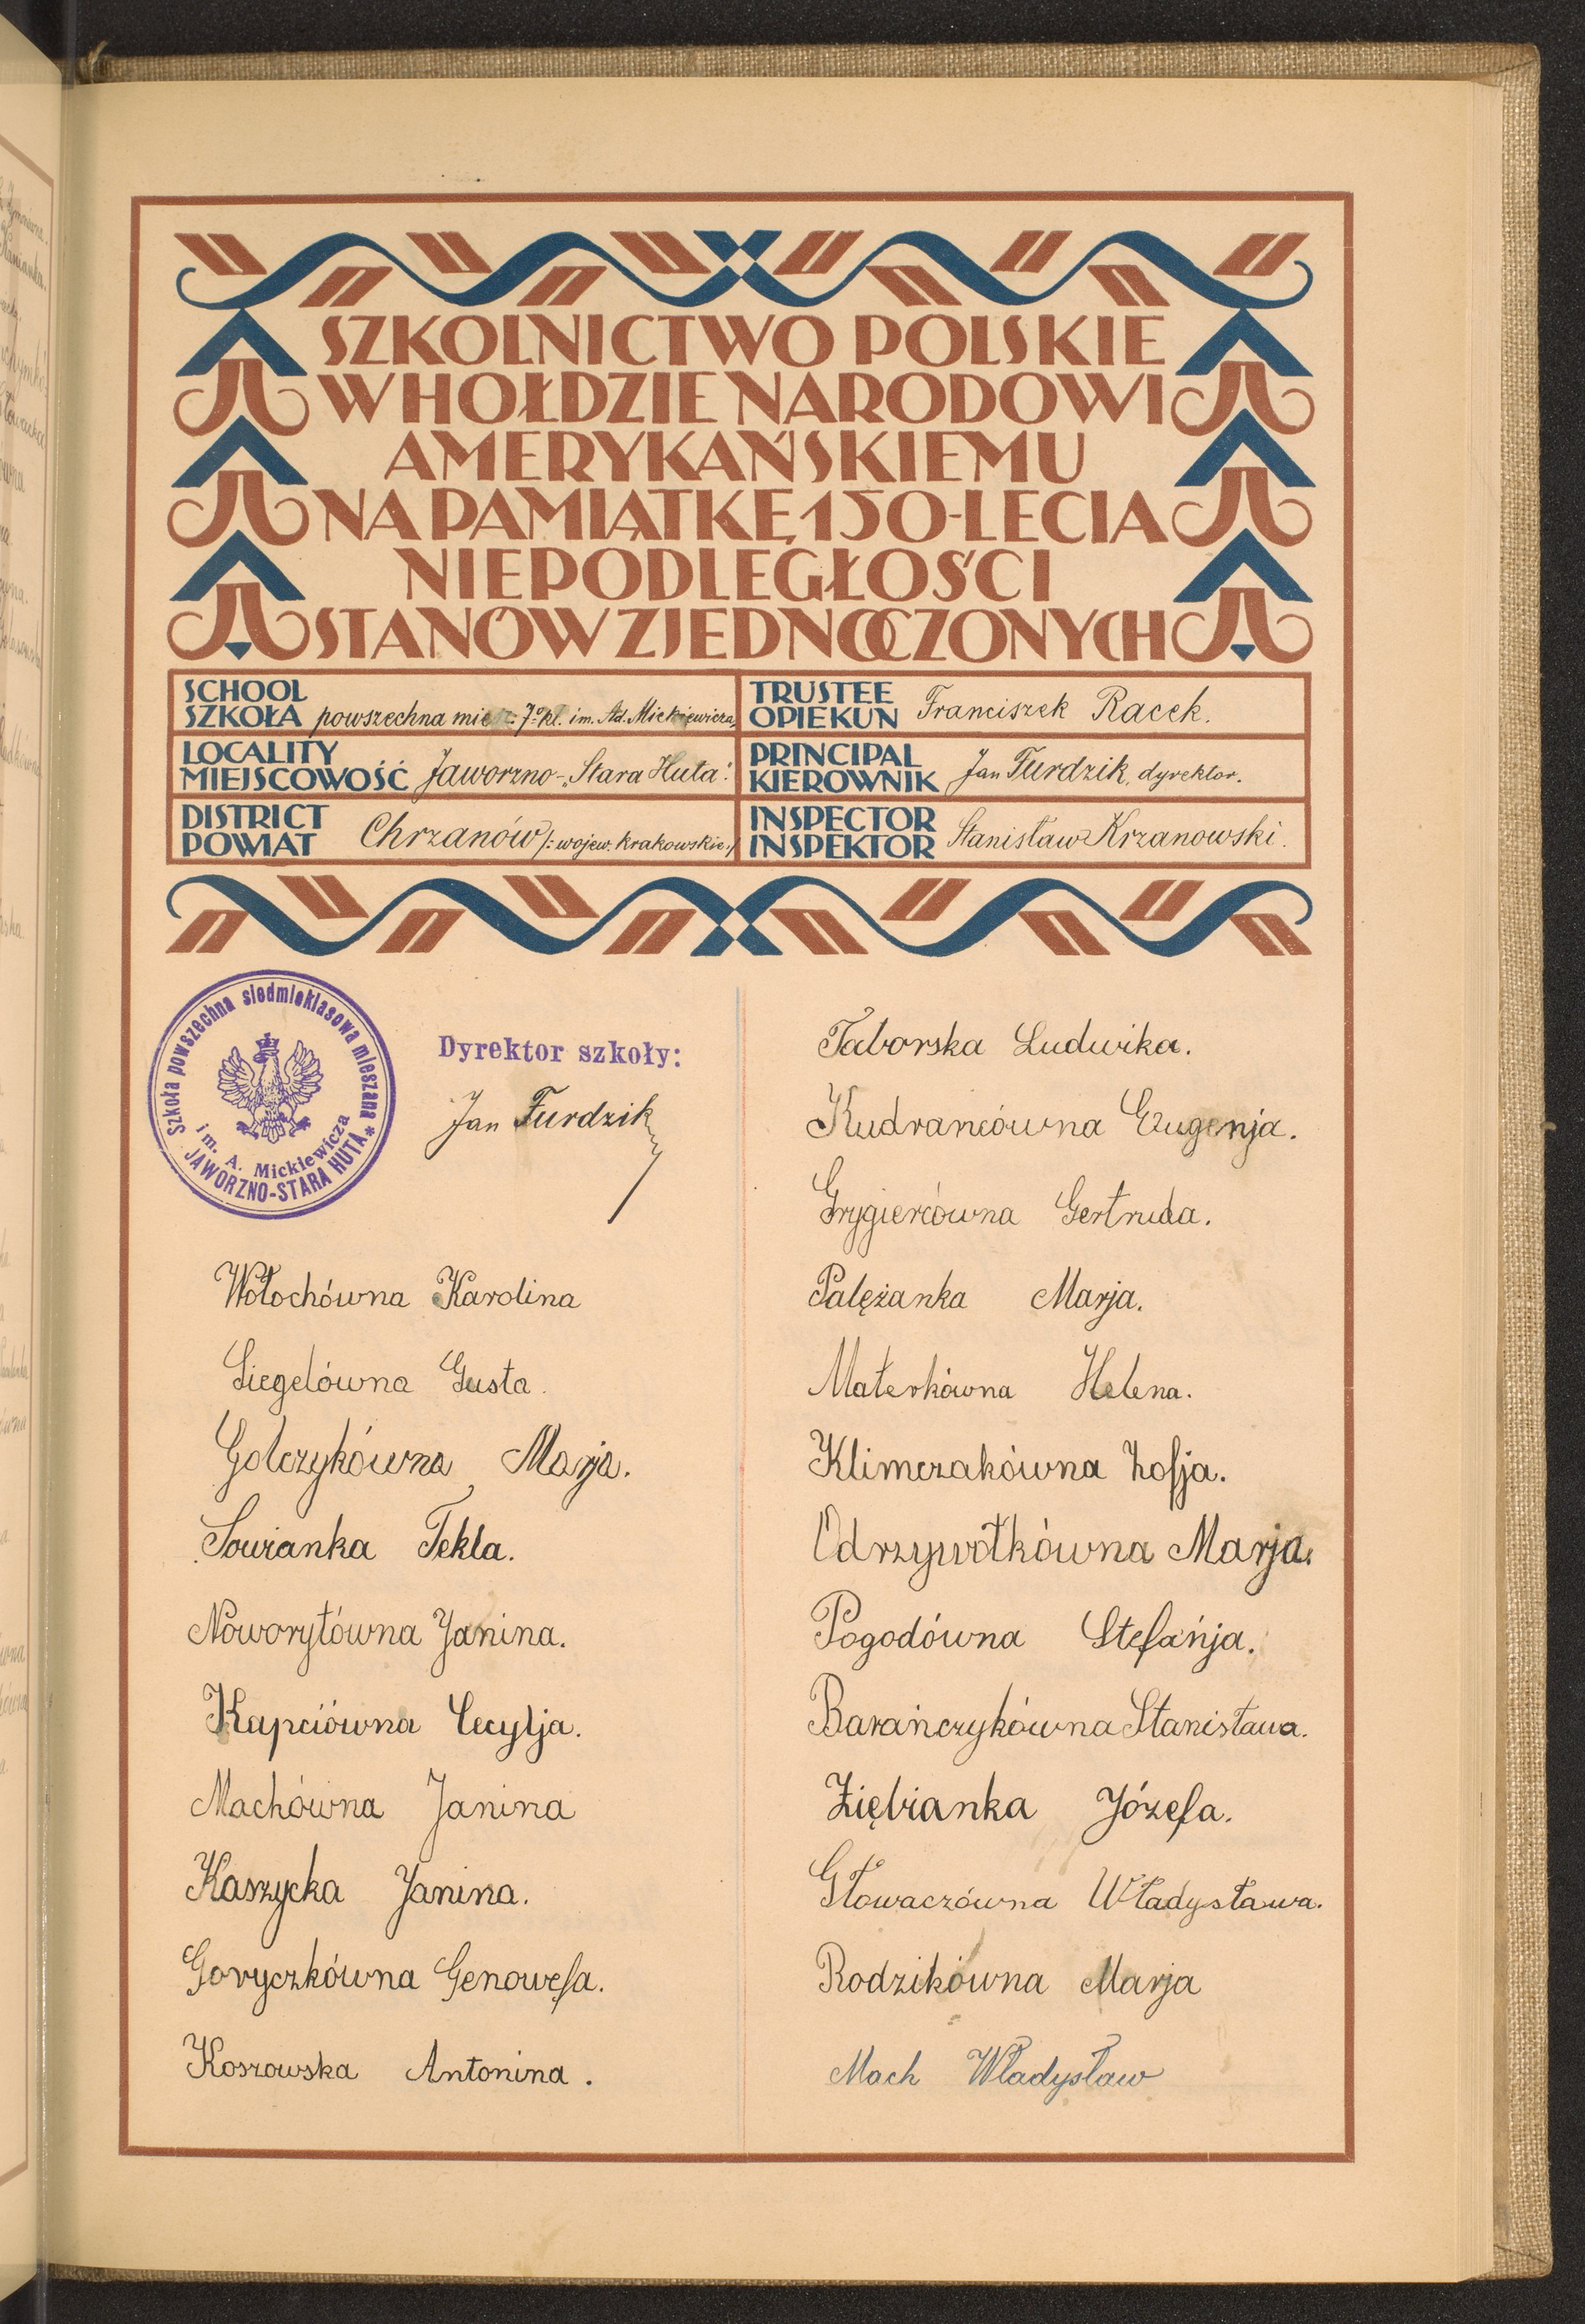 SZKOLNICTWO POLSKIE
W HOŁDZIE NARODOWI
AMERYKAŃSKIEMU
NA PAMIĄTKĘ 150-LECIA
NIEPODLEGŁOŚCI
STANÓW ZJEDNOCZONYCH
SCHOOL
SZKOŁA powszechna miesz: 7-o kl. im. Ad. Mickiewicza
LOCALITY
MIEJSCOWOŚĆ Jaworzno-„Stara Huta".
DISTRICT
POWIAT Chrzanów /: wojew. krakowskie:/
TRUSTEE
OPIEKUN Franciszek Racek.
PRINCIPAL
KIEROWNIK Jan Furdzik, dyrektor.
INSPECTOR
INSPEKTOR Stanisław Krzanowski.
Szkoła powszechna siedmioklasowa mieszana *
im. A. Mickiewicza
JAWORZNO-STARA HUTA
Dyrektor szkoły:
Jan Furdzik
Wołochówna Karolina
Siegelówna Gusta.
Golczykówna Marja.
Sowianka Tekla.
Noworytówna Janina.
Kapciówna Cecylja.
Machówna Janina
Kaszycka Janina.
Goryczkówna Genowefa.
Koszowska Antonina.
Taborska Ludwika.
Kudrancówna Eugenja.
Grygiercówna Gertruda.
Palężanka Marja.
Materkówna Helena.
Klimczakówna Zofja.
Odrzywołkówna Marja.
Pogodówna Stefańja.
Barańczykówna Stanisława.
Ziębianka Józefa.
Głowaczówna Władysława.
Rodzikówna Marja
Mach Władysław